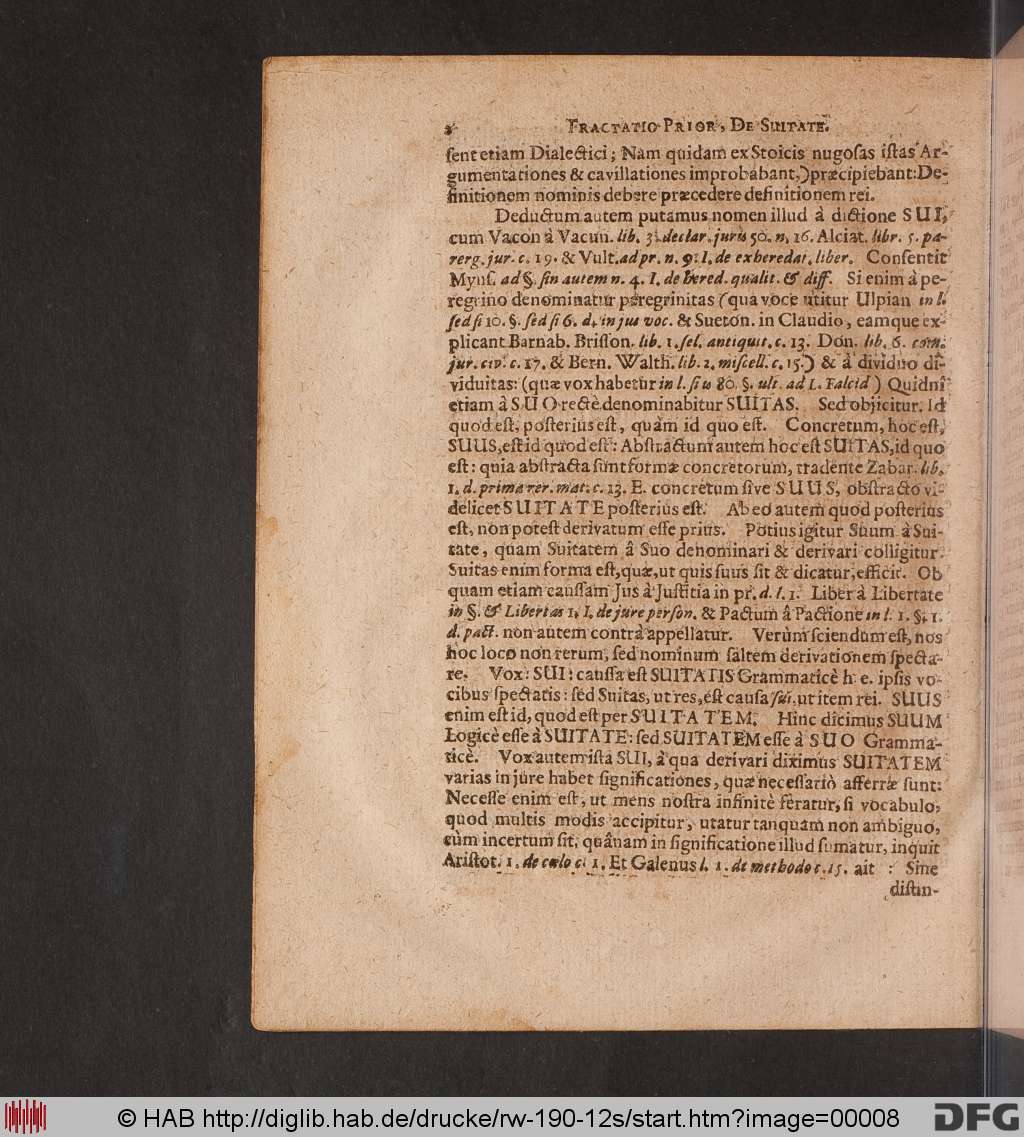 8 TRACTATIO PRIOR, DE SUITATE.
sent etiam Dialectici; Nam quidam ex Stoicis nugosas istas Ar-
gumentationes & cavillationes improbabant,) præcipiebant: De-
finitionem nominis debere præcedere definitionem rei.
Deductum autem putamus nomen illud à dictione SUI,
cum Vacon à Vacun. lib. 3. declar. juris 50. n. 16. Alciat. libr. 5. pa-
rerg. jur. c. 19. & Vult. ad pr. n. 9. I. de exheredat. liber. Consentit
Myns. ad §. sin autem n. 4. I. de hered. qualit. & diff. Si enim à pe-
regrino denominatur peregrinitas (qua voce utitur Ulpian in l.
sed si 10. §. sed si 6. d. in jus voc. & Sueton. in Claudio, eamque ex-
plicant Barnab. Brisson. lib. 1. sel. antiquit. c. 13. Don. lib. 6. com.
jur. civ. c. 17. & Bern. Walth. lib. 2. miscell. c. 15.) & à dividuo di-
viduitas: (quæ vox habetur in l. si is 80. §. ult. ad L. Falcid) Quidni
etiam à SUO rectè denominabitur SUITAS. Sed objicitur. Id
quod est, posterius est, quàm id quo est. Concretum, hoc est,
SUUS, est id quod est: Abstractum autem hoc est SUITAS, id quo
est: quia abstracta sunt formæ concretorum, tradente Zabar. lib.
1. d. prima rer. mat. c. 13. E. concretum sive SUUS, obstracto vi-
delicet SUITATE posterius est. Ab eo autem quod posterius
est, non potest derivatum esse prius. Potius igitur Suum à Sui-
tate, quam Suitatem â Suo denominari & derivari colligitur.
Suitas enim forma est, quæ, ut quis suus sit & dicatur, efficit. Ob
quam etiam caussam Jus à Justitia in pr. d. l. 1. Liber à Libertate
in §. & Libertas 1. I. de jure person. & Pactum â Pactione in l. 1. §. 1.
d. pact. non autem contrà appellatur. Verùm sciendum est, nos
hoc loco non rerum, sed nominum saltem derivationem specta-
re. Vox: SUI: caussa est SUITATIS Grammaticè h. e. ipsis vo-
cibus spectatis: sed Suitas, ut res, est causa sui. ut item rei. SUUS
enim est id, quod est per SUITATEM. Hinc dicimus SUUM
Logicè esse à SUITATE: sed SUITATEM esse à SUO Gramma-
ticè. Vox autem ista SUI, à qua derivari diximus SUITATEM
varias in jure habet significationes, quæ necessariò afferræ sunt:
Necesse enim est, ut mens nostra infinitè feratur, si vocabulo,
quod multis modis accipitur, utatur tanquam non ambiguo,
cùm incertum sit, quânam in significatione illud sumatur, inquit
Aristot. 1. de cælo c. 1. Et Galenus l. 1. de methodo c. 15. ait : Sine
distin-
© HAB http://diglib.hab.de/drucke/rw-190-12s/start.htm?image=00008
DFG